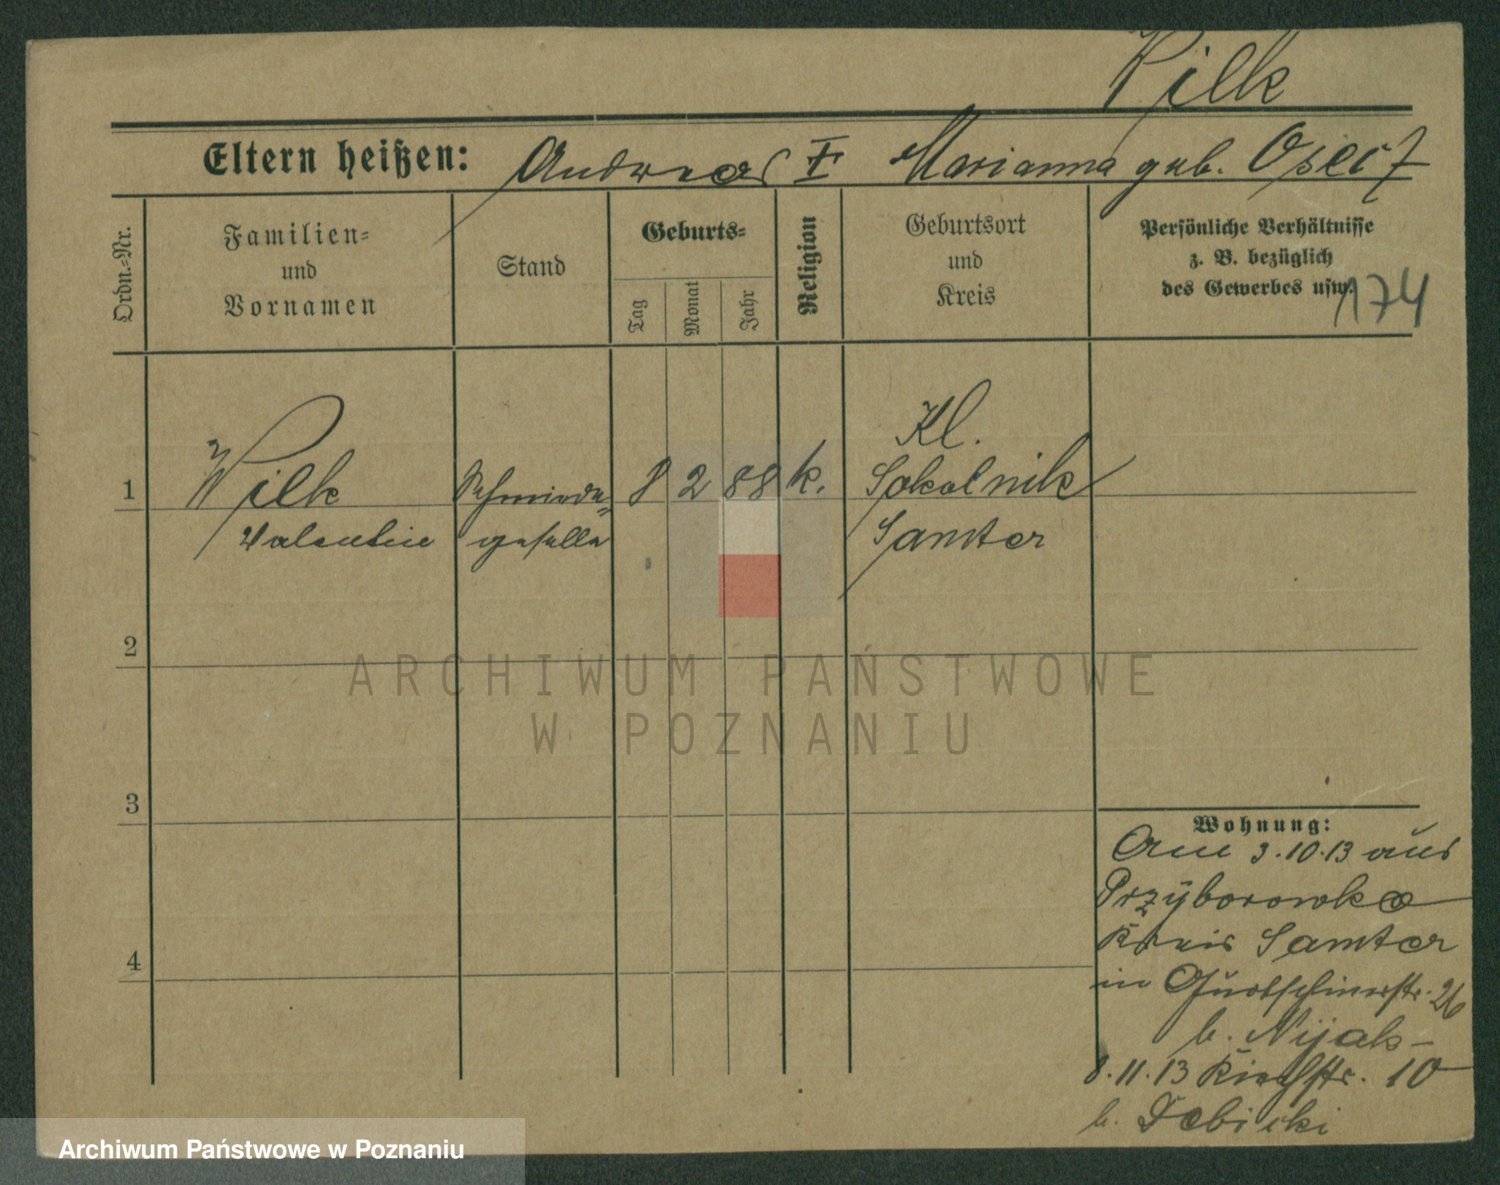 Wilk
Eltern heißen: Andreas † Marianna geb.
Ordn.-Nr.
Familien-
und
Vornamen
Stand
Geburts-
Tag
Monat
Jahr
Religion
Geburtsort
und
Kreis
Persönliche Verhältnisse
z. B. bezüglich
des Gewerbes usw.
174
1 Wilk Schmiede- 8 2 88 k. Kl. Sokolnik
Valentin geselle Samter
2
3
4
Wohnung:
Am 3.10.13 aus
Przyborowko
Kreis Samter
in Gurtschinerstr. 26
b. Nijak
8.11.13 Kirchstr. 10
b. Debicki
ARCHIWUM PAŃSTWOWE
W POZNANIU
Archiwum Państwowe w Poznaniu